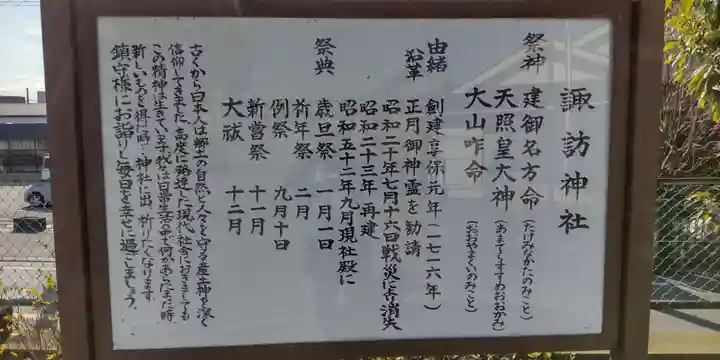 諏訪神社
祭神 建御名方命(たけみなかたのみこと)
天照皇大神(あまてらすすめおおかみ)
大山咋命(おおやまくいのみこと)
由緒 創建享保元年(一七一六年)
沿革 正月御神霊を勧請
昭和二十年七月十六日戦災に古消失
昭和二十三年再建
昭和五十二年九月現社殿に
祭典 歳旦祭 一月一日
祈年祭 二月
例祭 九月十日
新嘗祭 十一月
大祓 十二月
古くから日本人は郷土の自然と人々を守る産土神を深く
信仰してきました。高度に発達した現代社会におきましても
この精神は生きています。我々は日常生活の中で何かあらたまった時、
新しいものを得た時、神社に出、祈りたくなります
鎮守様にお詣りし毎日を幸せに過ごしましょう。